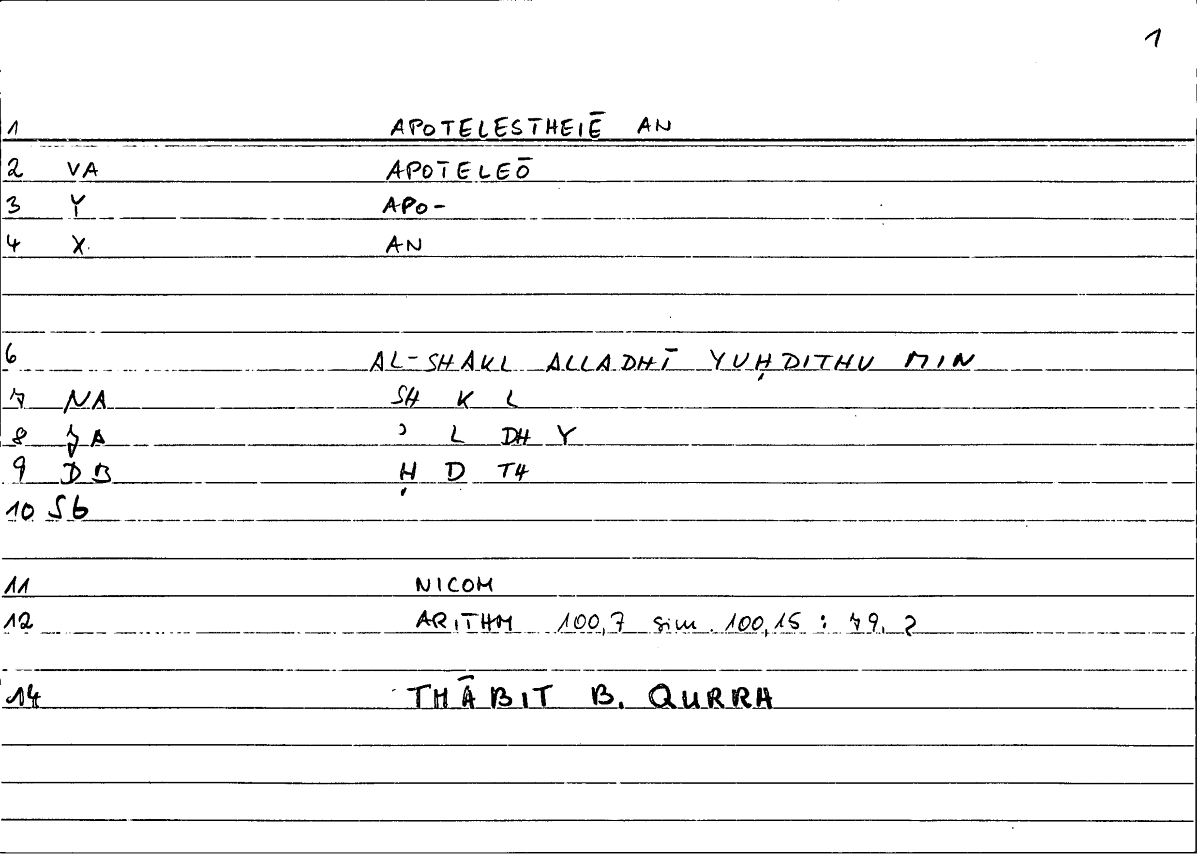 1
1 APOTELESTHEIĒ AN
2 VA APOTELEŌ
3 Y APO-
4 X. AN
6 AL-SHAKL ALLADHĪ YUḤDITHU MIN
7 NA SH K L
8 JA ʾ L DH Y
9 DB Ḥ D TH
10 Sb
11 NICOM
12 ARITHM 100,7 sim. 100,15 : 79, 2
14 THĀBIT B. QURRA